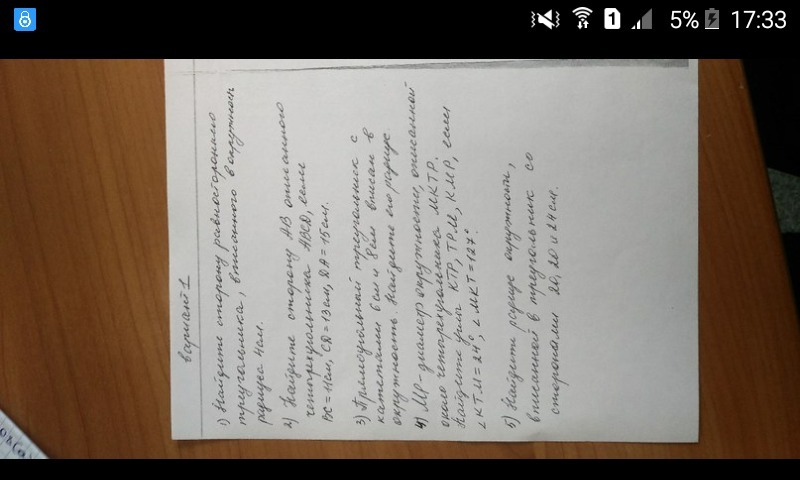 1 5% 17:33
Вариант 1
1) Найдите сторону равностороннего
треугольника, вписанного в окружность
радиуса 4см.
2) Найдите сторону АВ описанного
четырехугольника ABCD, если
ВС=11см, CD=13см, DA=15см.
3) Прямоугольный треугольник с
катетами 6см и 8см вписан в
окружность. Найдите его радиус.
4) МР-диаметр окружности, описанной
около четырехугольника МКТР.
Найдите углы КТР, ТРМ, КМР, если
∠КТМ=24°, ∠МКТ=127°
5) Найдите радиус окружности,
вписанной в треугольник со
сторонами 20, 20 и 24см.